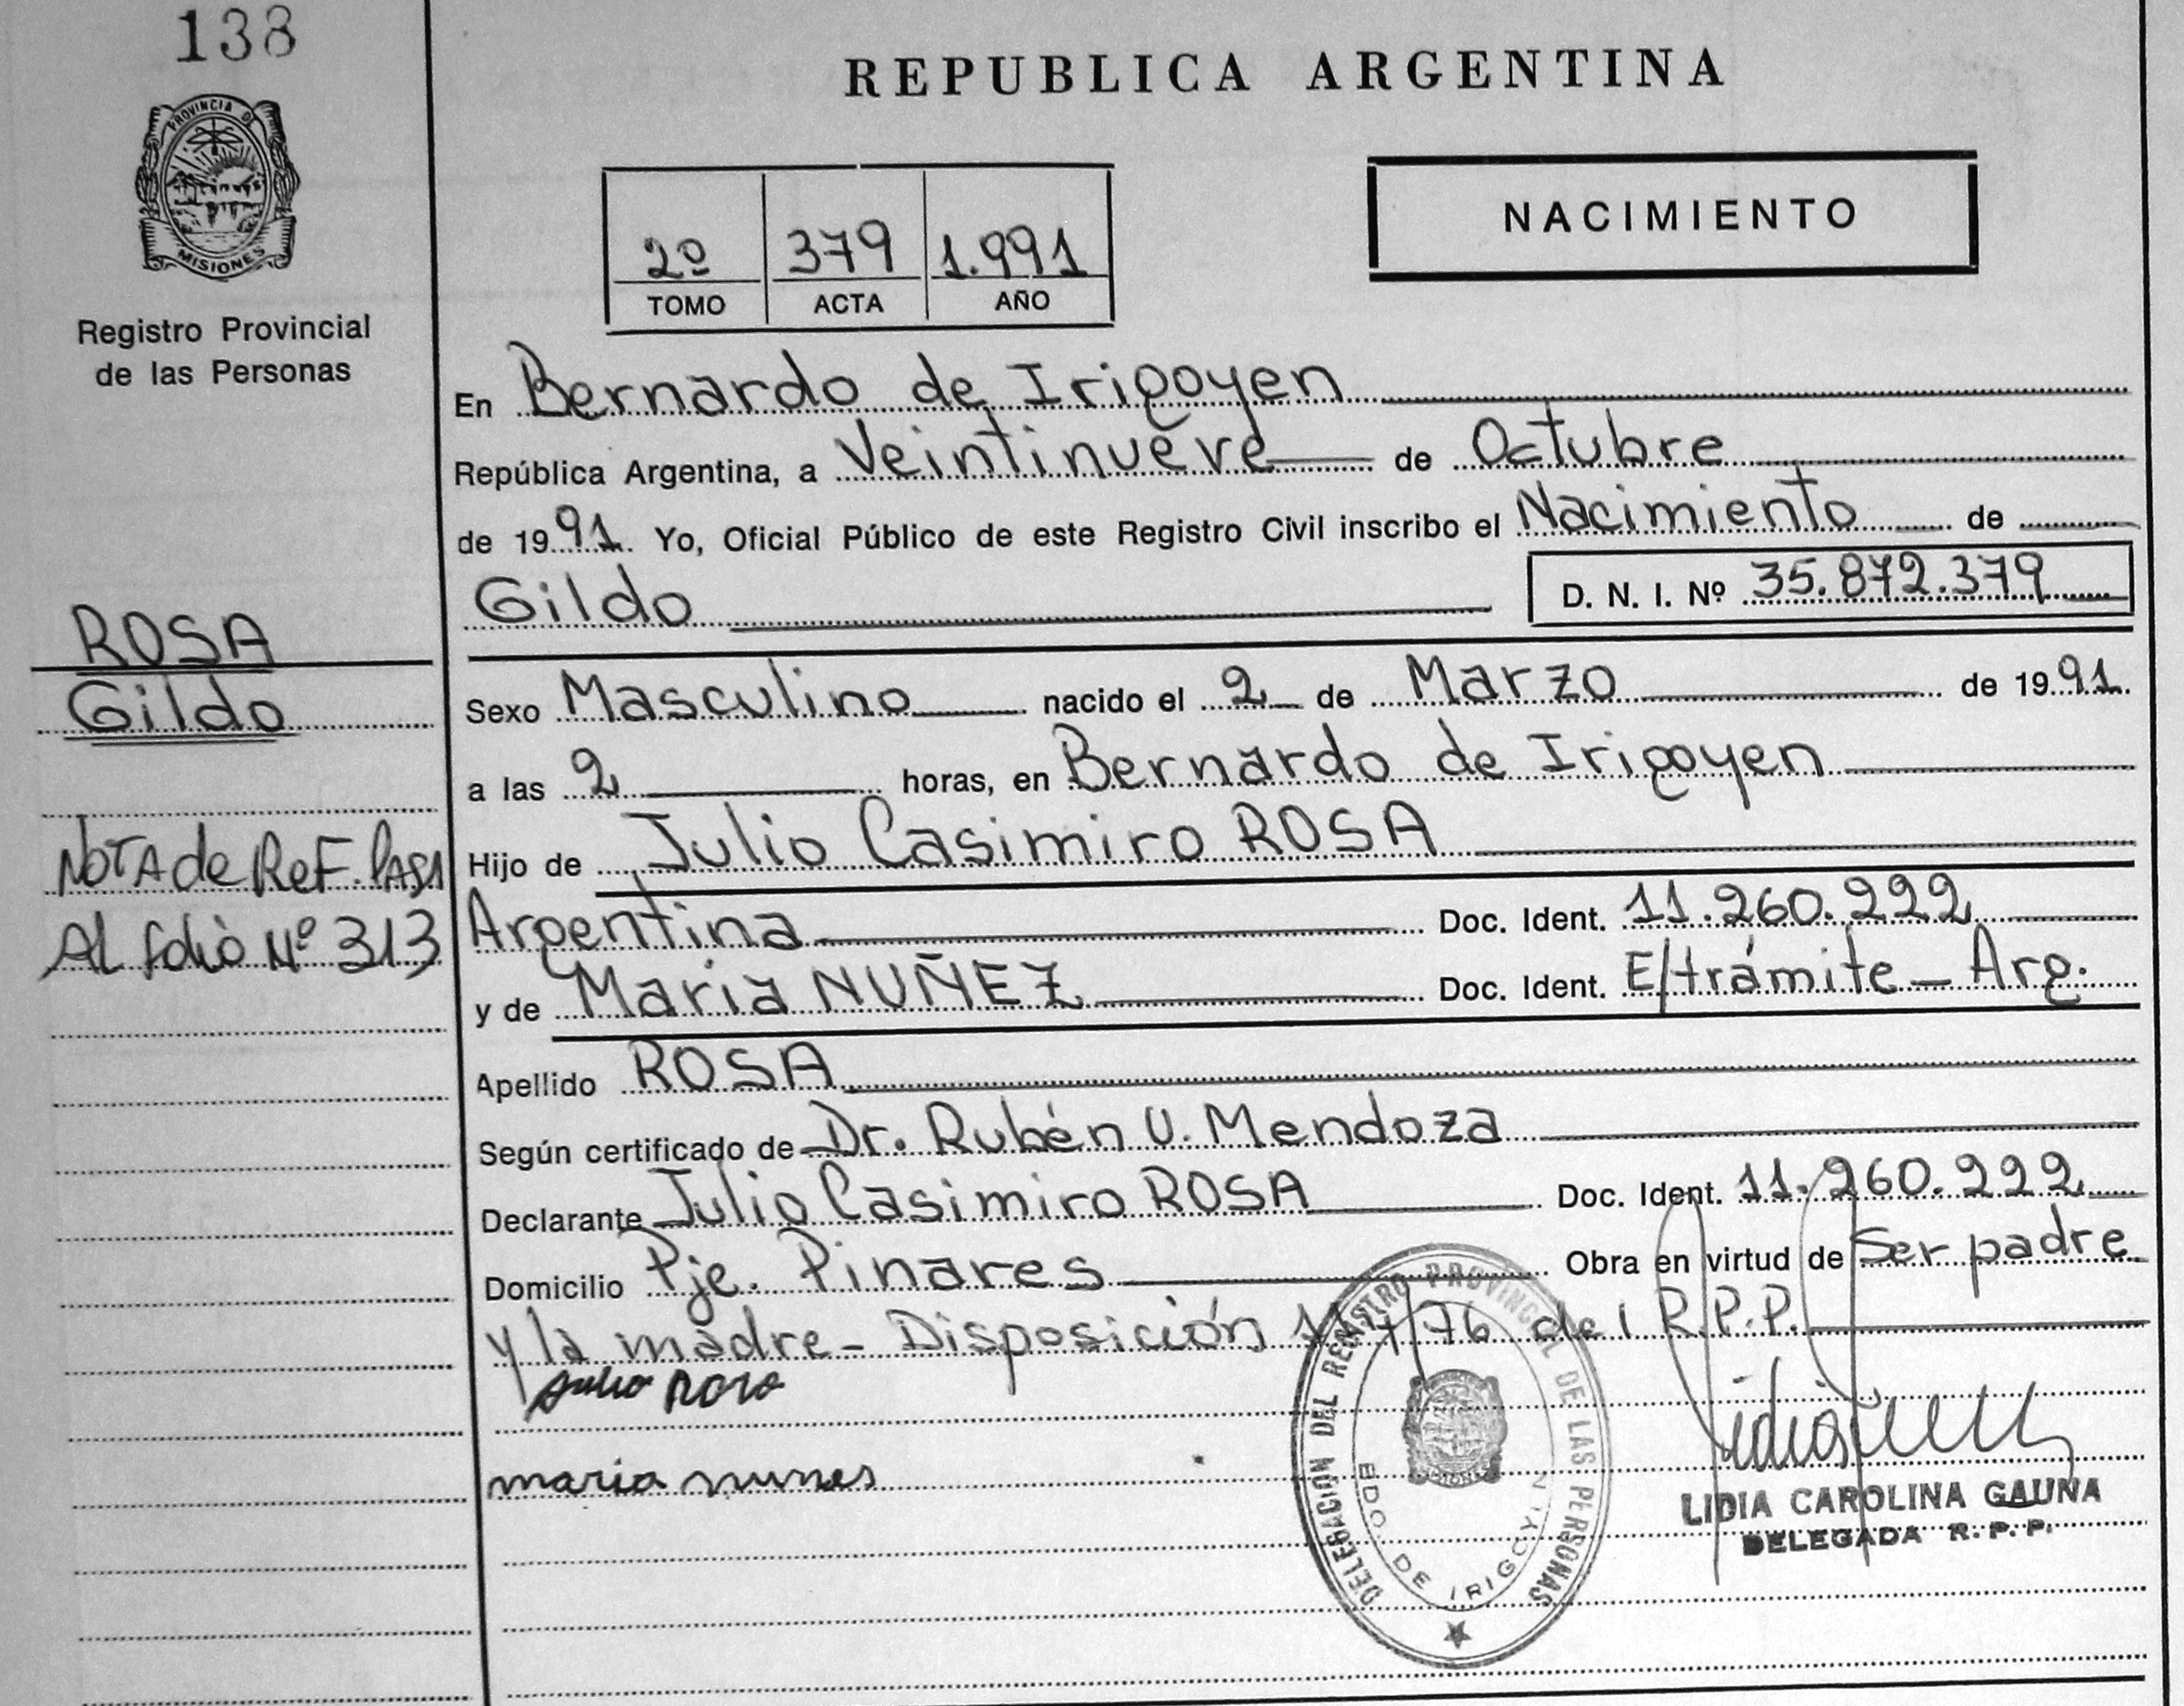 138
PROVINCIA DE
MISIONES
Registro Provincial
de las Personas
ROSA
Gildo
NOTA de REF. PASA
Al folio Nº 313
REPUBLICA ARGENTINA
NACIMIENTO
2º 379 1.991
TOMO ACTA AÑO
En Bernardo de Irigoyen
República Argentina, a Veintinueve de Octubre
de 1991. Yo, Oficial Público de este Registro Civil inscribo el Nacimiento de
Gildo D. N. I. Nº 35.872.379
Sexo Masculino nacido el 2 de Marzo de 1991.
a las 2 horas, en Bernardo de Irigoyen
Hijo de Julio Casimiro ROSA
Argentina Doc. Ident. 11.260.222
y de Maria NUÑEZ Doc. Ident. E/trámite - Arg.
Apellido ROSA
Según certificado de Dr. Rubén U. Mendoza
Declarante Julio Casimiro ROSA Doc. Ident. 11.260.222
Domicilio Pje. Pinares Obra en virtud de Ser padre
y la madre - Disposición /76 del R.P.P.
Julio Rosa
maria nunes
DELEGACIÓN DEL REGISTRO PROVINCIAL DE LAS PERSONAS
BDO. DE IRIGOYEN
LIDIA CAROLINA GAUNA
DELEGADA R. P. P.